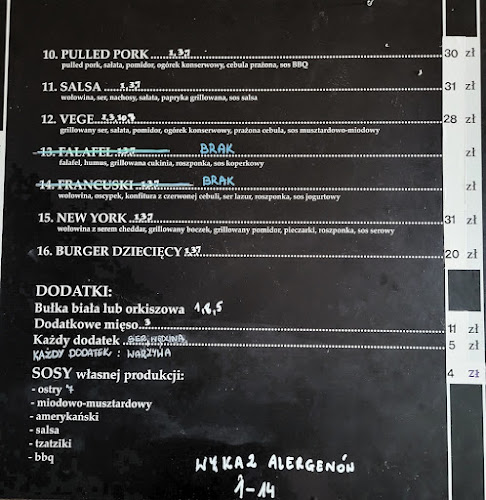 10. PULLED PORK 1,3,7 30 zł
pulled pork, sałata, pomidor, ogórek konserwowy, cebula prażona, sos BBQ
11. SALSA 1,3,7 31 zł
wołowina, ser, nachosy, sałata, papryka grillowana, sos salsa
12. VEGE 1,3,10,7 28 zł
grillowany ser, sałata, pomidor, ogórek konserwowy, prażona cebula, sos musztardowo-miodowy
13. FALAFEL 1,3,7 BRAK
falafel, humus, grillowana cukinia, roszponka, sos koperkowy
14. FRANCUSKI 1,3,7 BRAK
wołowina, oscypek, konfitura z czerwonej cebuli, ser lazur, roszponka, sos jogurtowy
15. NEW YORK 1,3,7 31 zł
wołowina z serem cheddar, grillowany boczek, grillowany pomidor, pieczarki, roszponka, sos serowy
16. BURGER DZIECIĘCY 1,3,7 20 zł
DODATKI:
Bułka biała lub orkiszowa 1,6,5
Dodatkowe mięso 3 11 zł
Każdy dodatek SER, WĘDLINA 5 zł
KAŻDY DODATEK : WARZYWA 4 zł
SOSY własnej produkcji:
- ostry 7
- miodowo-musztardowy
- amerykański
- salsa
- tzatziki
- bbq
WYKAZ ALERGENÓW
1-14